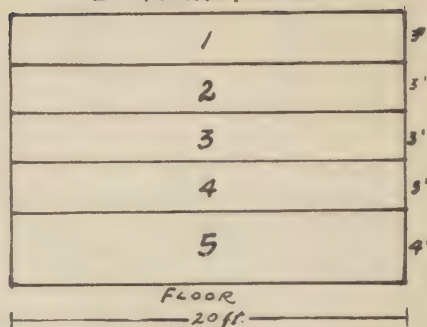 1 3'
2 3'
3 3'
4 3'
5 4'
FLOOR
20 ft.